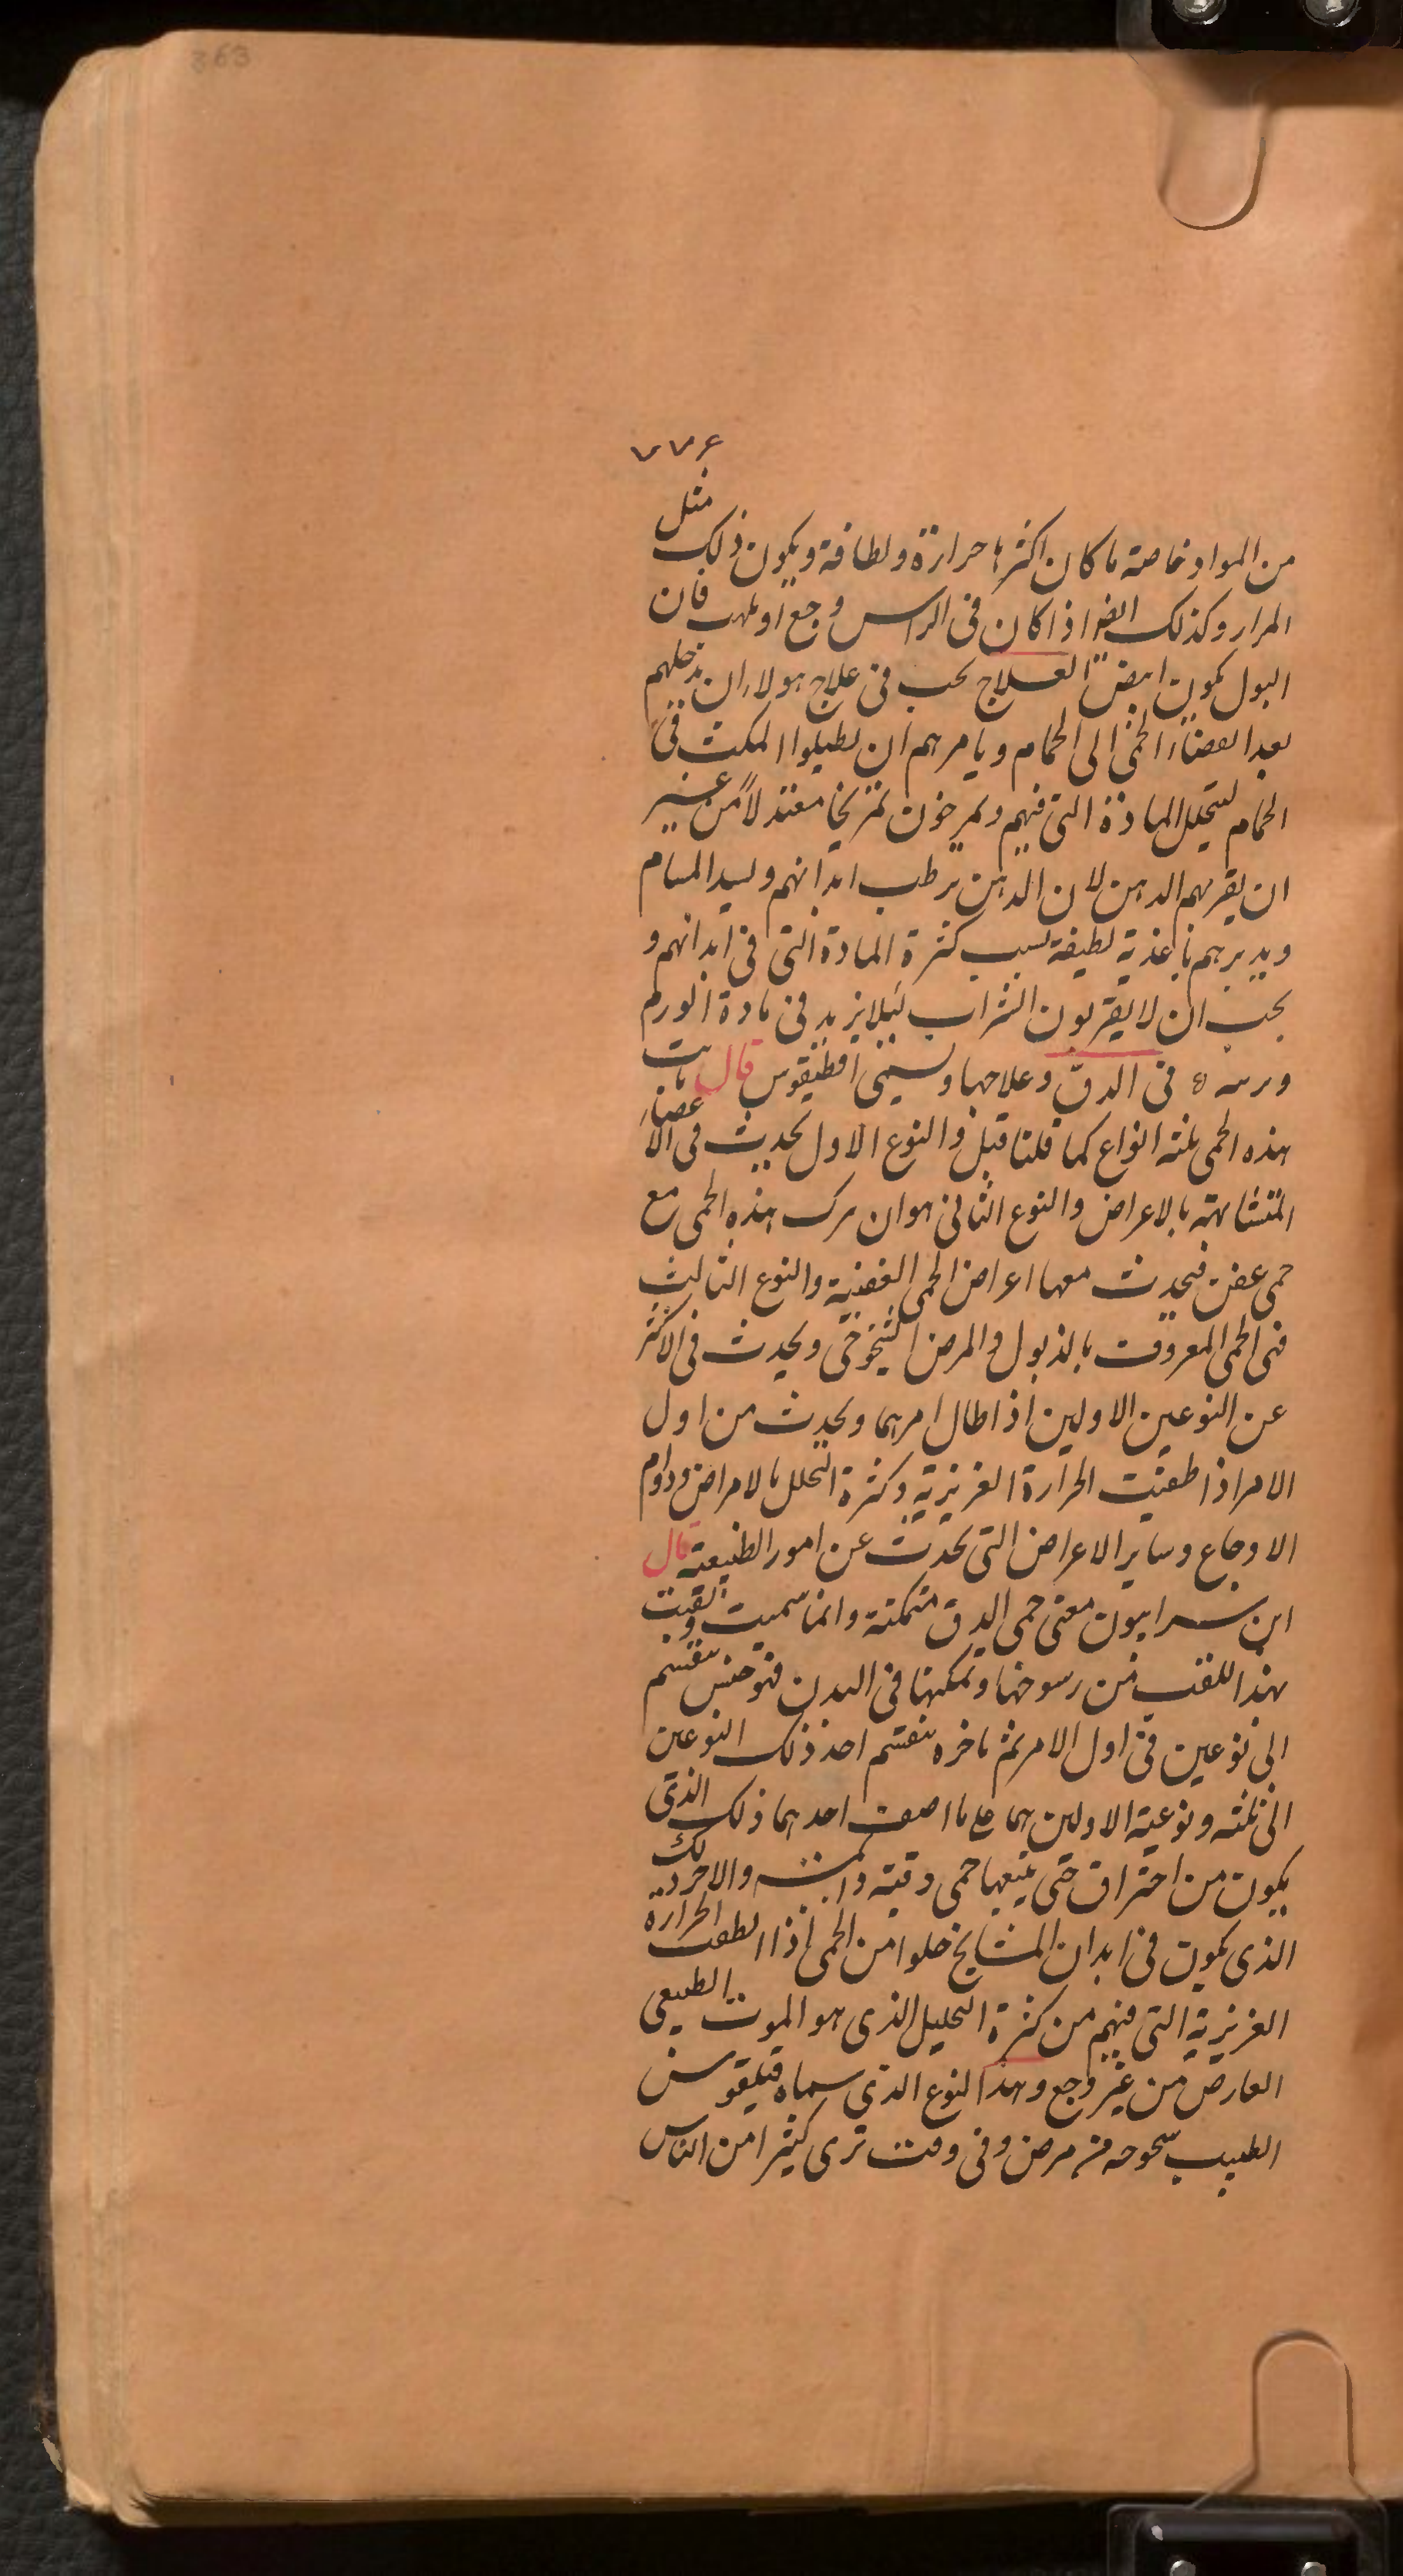 363
٧٧۶
من المواد خاصة ما كان اكثرها حرارة ولطافة ويكون ذلك مثل
المرار وكذلك ايضا اذا كان فى الراس وجع او تلهب فان
البول يكون ابيض العلاج يجب فى علاج هولاء ان تدخلهم
بعد انقضاء الحمى الى الحمام ويامرهم ان يطيلوا المكث فى
الحمام ليتحلل المادة التى فيهم ويمرخون تمريخا معتدلاً من غير
ان يقربهم الدهن لان الدهن يرطب ابدانهم ويسد المسام
ويدبرهم باغذية لطيفة بسبب كثرة المادة التى فى ابدانهم و
يجب ان لا يقربون الشراب ليلا يزيد فى مادة الورم
فى الدق وعلاجها ويسمى اقطيقوس قال
هذه الحمى ثلثه انواع كما قلنا قبل والنوع الاول يحدث فى الاعضاء
المتشابهة بالاعراض والنوع الثانى هو ان يركب هذه الحمى مع
حمى عفن فيحدث معها اعراض الحمى العفنية والنوع الثالث
فى الحمى المعروفت بالذبول والمرض الشيخوخى ويحدث فى الاكثر
عن النوعين الاولين اذا طال امرهما ويحدث من اول
الامر اذا طفيت الحرارة الغريزية وكثرة التحلل بالامراض ودوام
الاوجاع وساير الاعراض التى تحدث عن امور الطبيعة قال
ابن سرابيون معنى حمى الدق متمكنة وانما سميت ولقبت
بهذا اللقب من رسوخها وتمكنها فى البدن فهو جنس ينقسم
الى نوعين فى اول الامر ثم باخره ينقسم احد ذلك النوعين
الى ثلثه ونوعية الاولين هما على ما اصف احدهما ذلك الذى
يكون من احتراق حتى يتبعها حمى دقية دايمة والاخر ذلك
الذى يكون فى ابدان المشايخ خلوا من الحمى اذا انطفت الحرارة
الغريزية التى فيهم من كثرة التحليل الذى هو الموت الطبيعى
العارض من غير وجع وهذا النوع الذى سماه فيلغوس
الطبيب شيخوخه من مرض وفى وقت ترى كثيرا من الناس